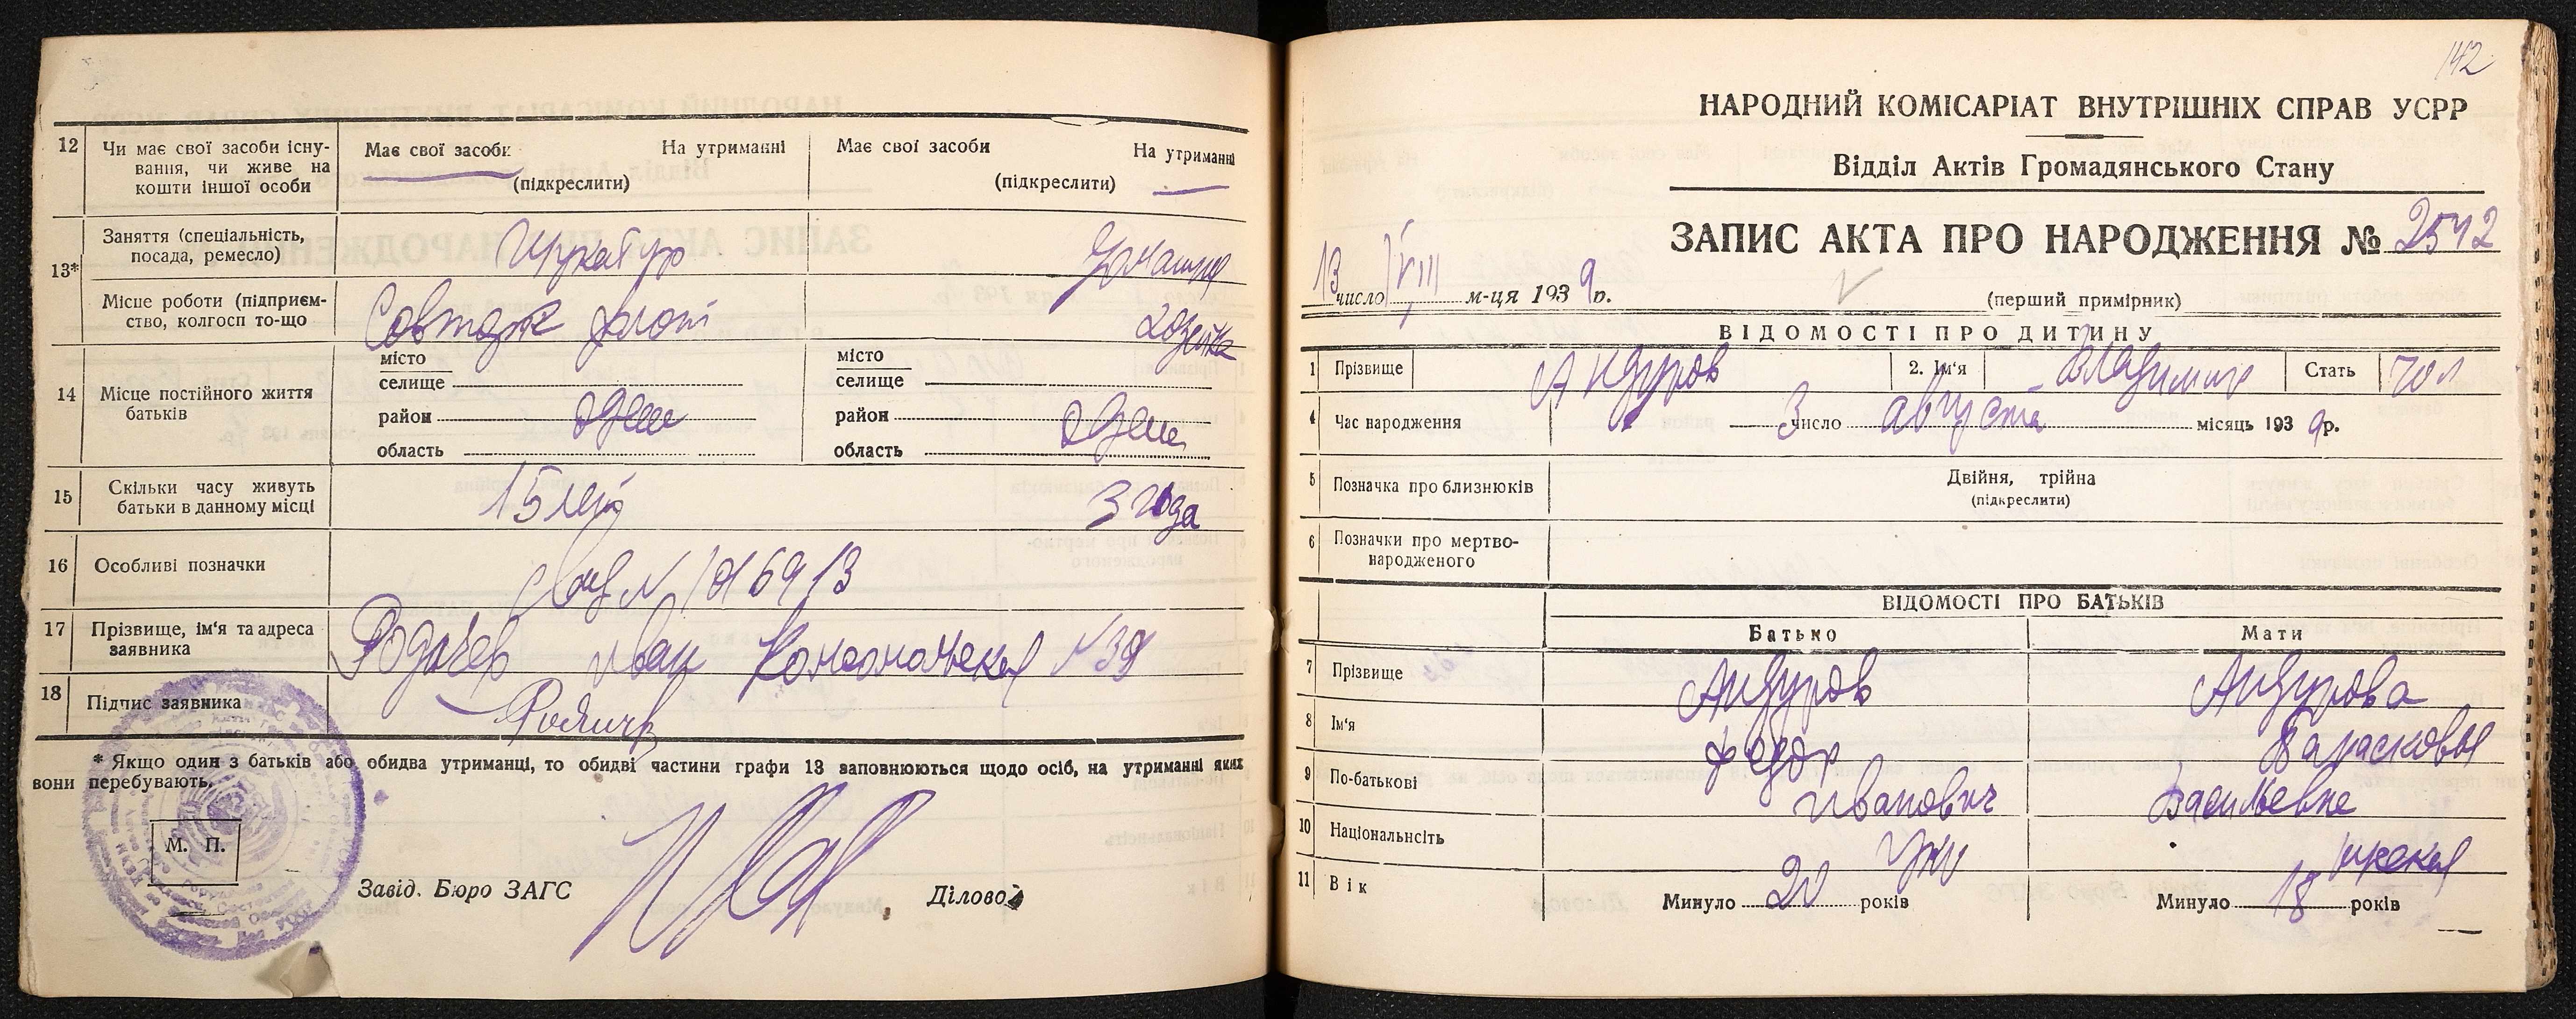 12 Чи має свої засоби існування, чи живе на кошти іншої особи
Має свої засоби На утриманні
(підкреслити)
Має свої засоби На утриманні
(підкреслити)
13*
Заняття (спеціальність, посада, ремесло)
Штукатур
Домашня
Місце роботи (підприємство, колгосп то-що
Совторг флот
хозяйка
14 Місце постійного життя батьків
місто
селище
район
область
Одеса
місто
селище
район
область
Одеса
15 Скільки часу живуть батьки в данному місці
15 лет
3 года
16 Особливі позначки
17 Прізвище, ім'я та адреса заявника
Иван Комсомольская №39
18 Підпис заявника
* Якщо один з батьків або обидва утриманці, то обидві частини графи 13 заповнюються щодо осіб, на утриманні яких
вони перебувають.
М. П.
Завід. Бюро ЗАГС
Діловод
142
НАРОДНИЙ КОМІСАРІАТ ВНУТРІШНІХ СПРАВ УСРР
Відділ Актів Громадянського Стану
ЗАПИС АКТА ПРО НАРОДЖЕННЯ № 2542
13 число VIII м-ця 1939 р.
(перший примірник)
ВІДОМОСТІ ПРО ДИТИНУ
1 Прізвище Андуров 2. Ім'я Владимир Стать чол
4 Час народження 3 число августа місяць 1939р.
5 Позначка про близнюків
Двійня, трійна
(підкреслити)
6 Позначки про мертвонародженого
ВІДОМОСТІ ПРО БАТЬКІВ
Батько Мати
7 Прізвище Андуров Андурова
8 Ім'я Федор Парасковья
9 По-батькові Иванович Васильевна
10 Національність Укр
11 Вік Минуло 20 років Минуло 18 років